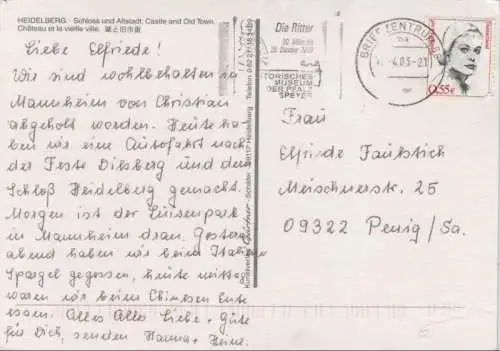 HEIDELBERG - Schloss und Altstadt, Castle and Old Town,
Château et la vieille ville.
Liebe Elfriede!
Wir sind wohlbehalten in
Mannheim von Christian
abgeholt worden. Heute ha-
ben wir eine Autofahrt nach
der Feste Dilsberg und dem
Schloß Heidelberg gemacht.
Morgen ist der Luisenpark
in Mannheim dran. Gestern
abend haben wir beim Italiener
Spargel gegessen, heute mittag
waren wir beim Chinesen Ente
essen. Alles Alles Liebe + Gute
für Dich, senden Hanna + Heinz.
Kunstverlag
Die Ritter
HISTORISCHES
MUSEUM
DER PFALZ
SPEYER
BRIEFZENTRUM
0,55€
Frau
Elfriede Faulstich
Meischnerstr. 25
09322 Penig/Sa.